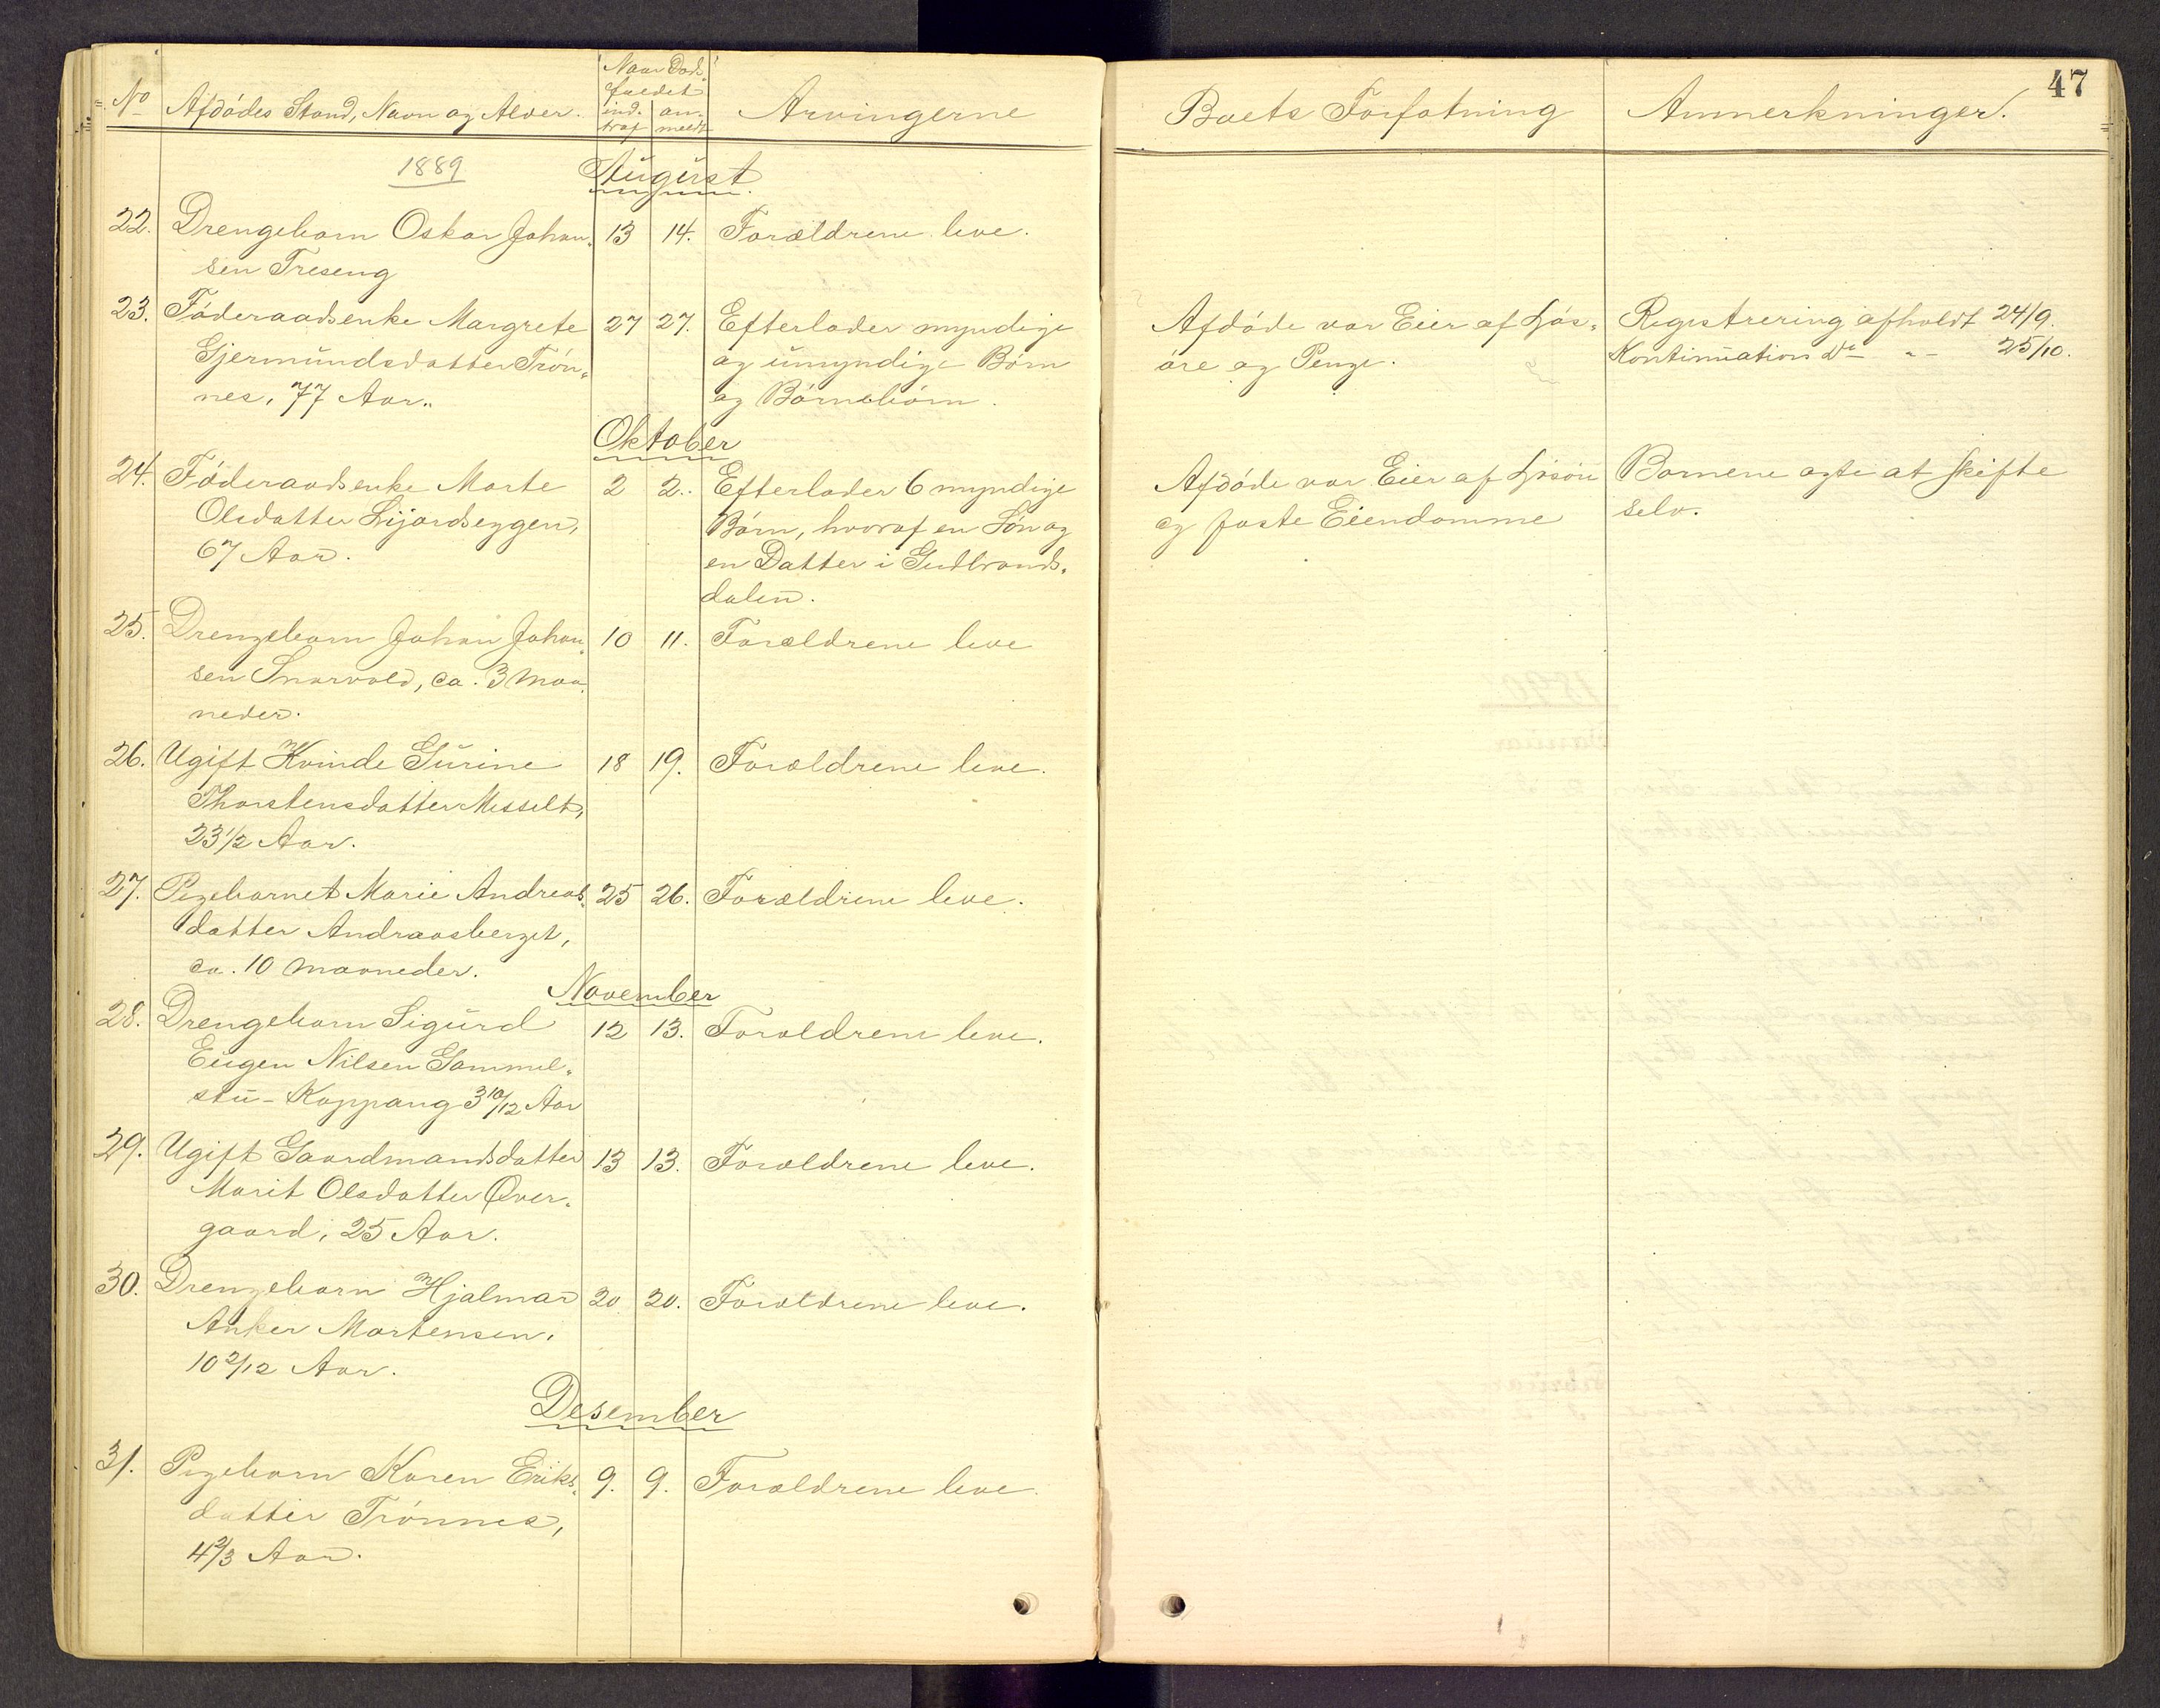 47
No Afdödes Stand, Navn og Alder. Naar Döds-
faldet
ind- an-
traf meldt Arvingerne Boets Forfatning Anmerkninger.
1889 August
22. Drengebarn Oskar Johan- 13 14. Forældrene leve.
sen Treseng
23. Föderaadsenke Margrete 27 27. Efterlader myndige Afdöde var Eier af Lös- Registrering afholdt 24/9.
Gjermundsdatter Trön- og umyndige Börn öre og Penge. Kontinuation Do " 25/10.
nes, 77 Aar. og Börnebörn.
Oktober
24. Föderaadsenke Marte 2 2. Efterlader 6 myndige Afdöde var Eier af Lösöre Bornene agte at skifte
Olsdatter Lijordseggen, Börn, hvoraf en Sön og og faste Eiendomme selv.
67 Aar. en Datter i Gudbrands-
dalen.
25. Drengebarn Johan Johan- 10 11. Forældrene leve
sen Snarvold, ca. 3 Maa-
neder.
26. Ugift Kvinde Gurine 18 19. Forældrene leve.
Thorstensdatter Messelt,
23 1/2 Aar.
27. Pigebarnet Marie Andreas- 25 26. Forældrene leve.
datter Andraasberget,
ca. 10 Maaneder.
November
28. Drengebarn Sigurd 12 13. Forældrene leve.
Eugen Nilsen Gammel-
stu- Koppang 3 10/12 Aar
29. Ugift Gaardmandsdatter 13 13. Forældrene leve.
Marit Olsdatter Över-
gaard, 25 Aar.
30. Drengebarn Hjalmar 20 20. Forældrene leve.
Anker Martensen,
10 2/12 Aar.
Desember
31. Pigebarn Karen Eriks- 9. 9. Forældrene leve.
datter Trönnes,
4 2/3 Aar.